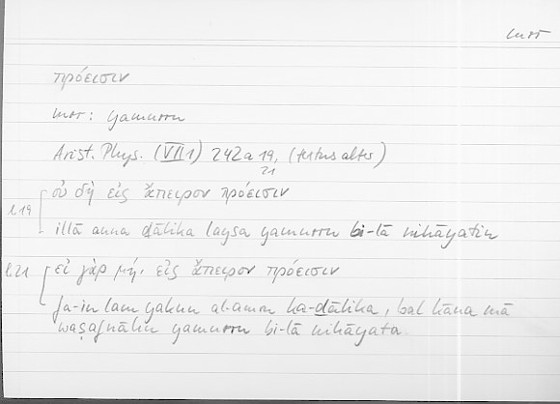 mrr
πρόεισιν
mrr: yamurru
Arist. Phys. (VII 1) 242a 19, (textus alter)
21
l.19 οὐ δὴ εἰς ἄπειρον πρόεισιν
illā anna ḏālika laysa yamurru bi-lā nihāyatin
l.21 εἰ γὰρ μή, εἰς ἄπειρον πρόεισιν
fa-in lam yakun al-amru ka-ḏālika, bal kāna mā
waṣafnāhu yamurru bi-lā nihāyata